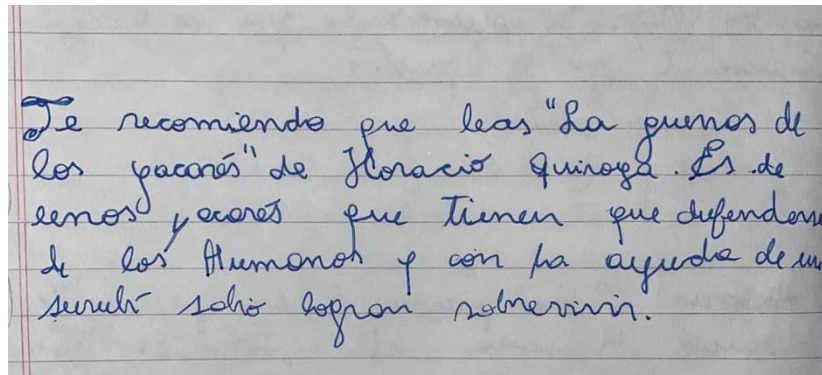 Te recomiendo que leas "La guerra de
los yacarés" de Horacio Quiroga. Es de
unos yacarés que tienen que defenderse
de los Humanos y con la ayuda de un
surubí sabio logran sobrevivir.